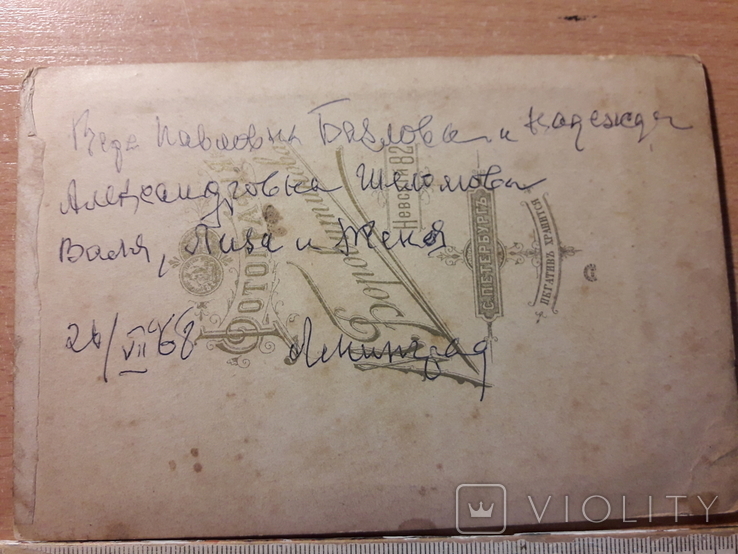 Вера Павловна Баулова и Надежда
Александровна Шеломова
Валя, Лиза и Женя
26/VII 68 Ленинград
ФОТОГРАФ
Невск
С. ПЕТЕРБУРГЪ
НЕГАТИВЪ ХРАНИТСЯ
VIOLITY